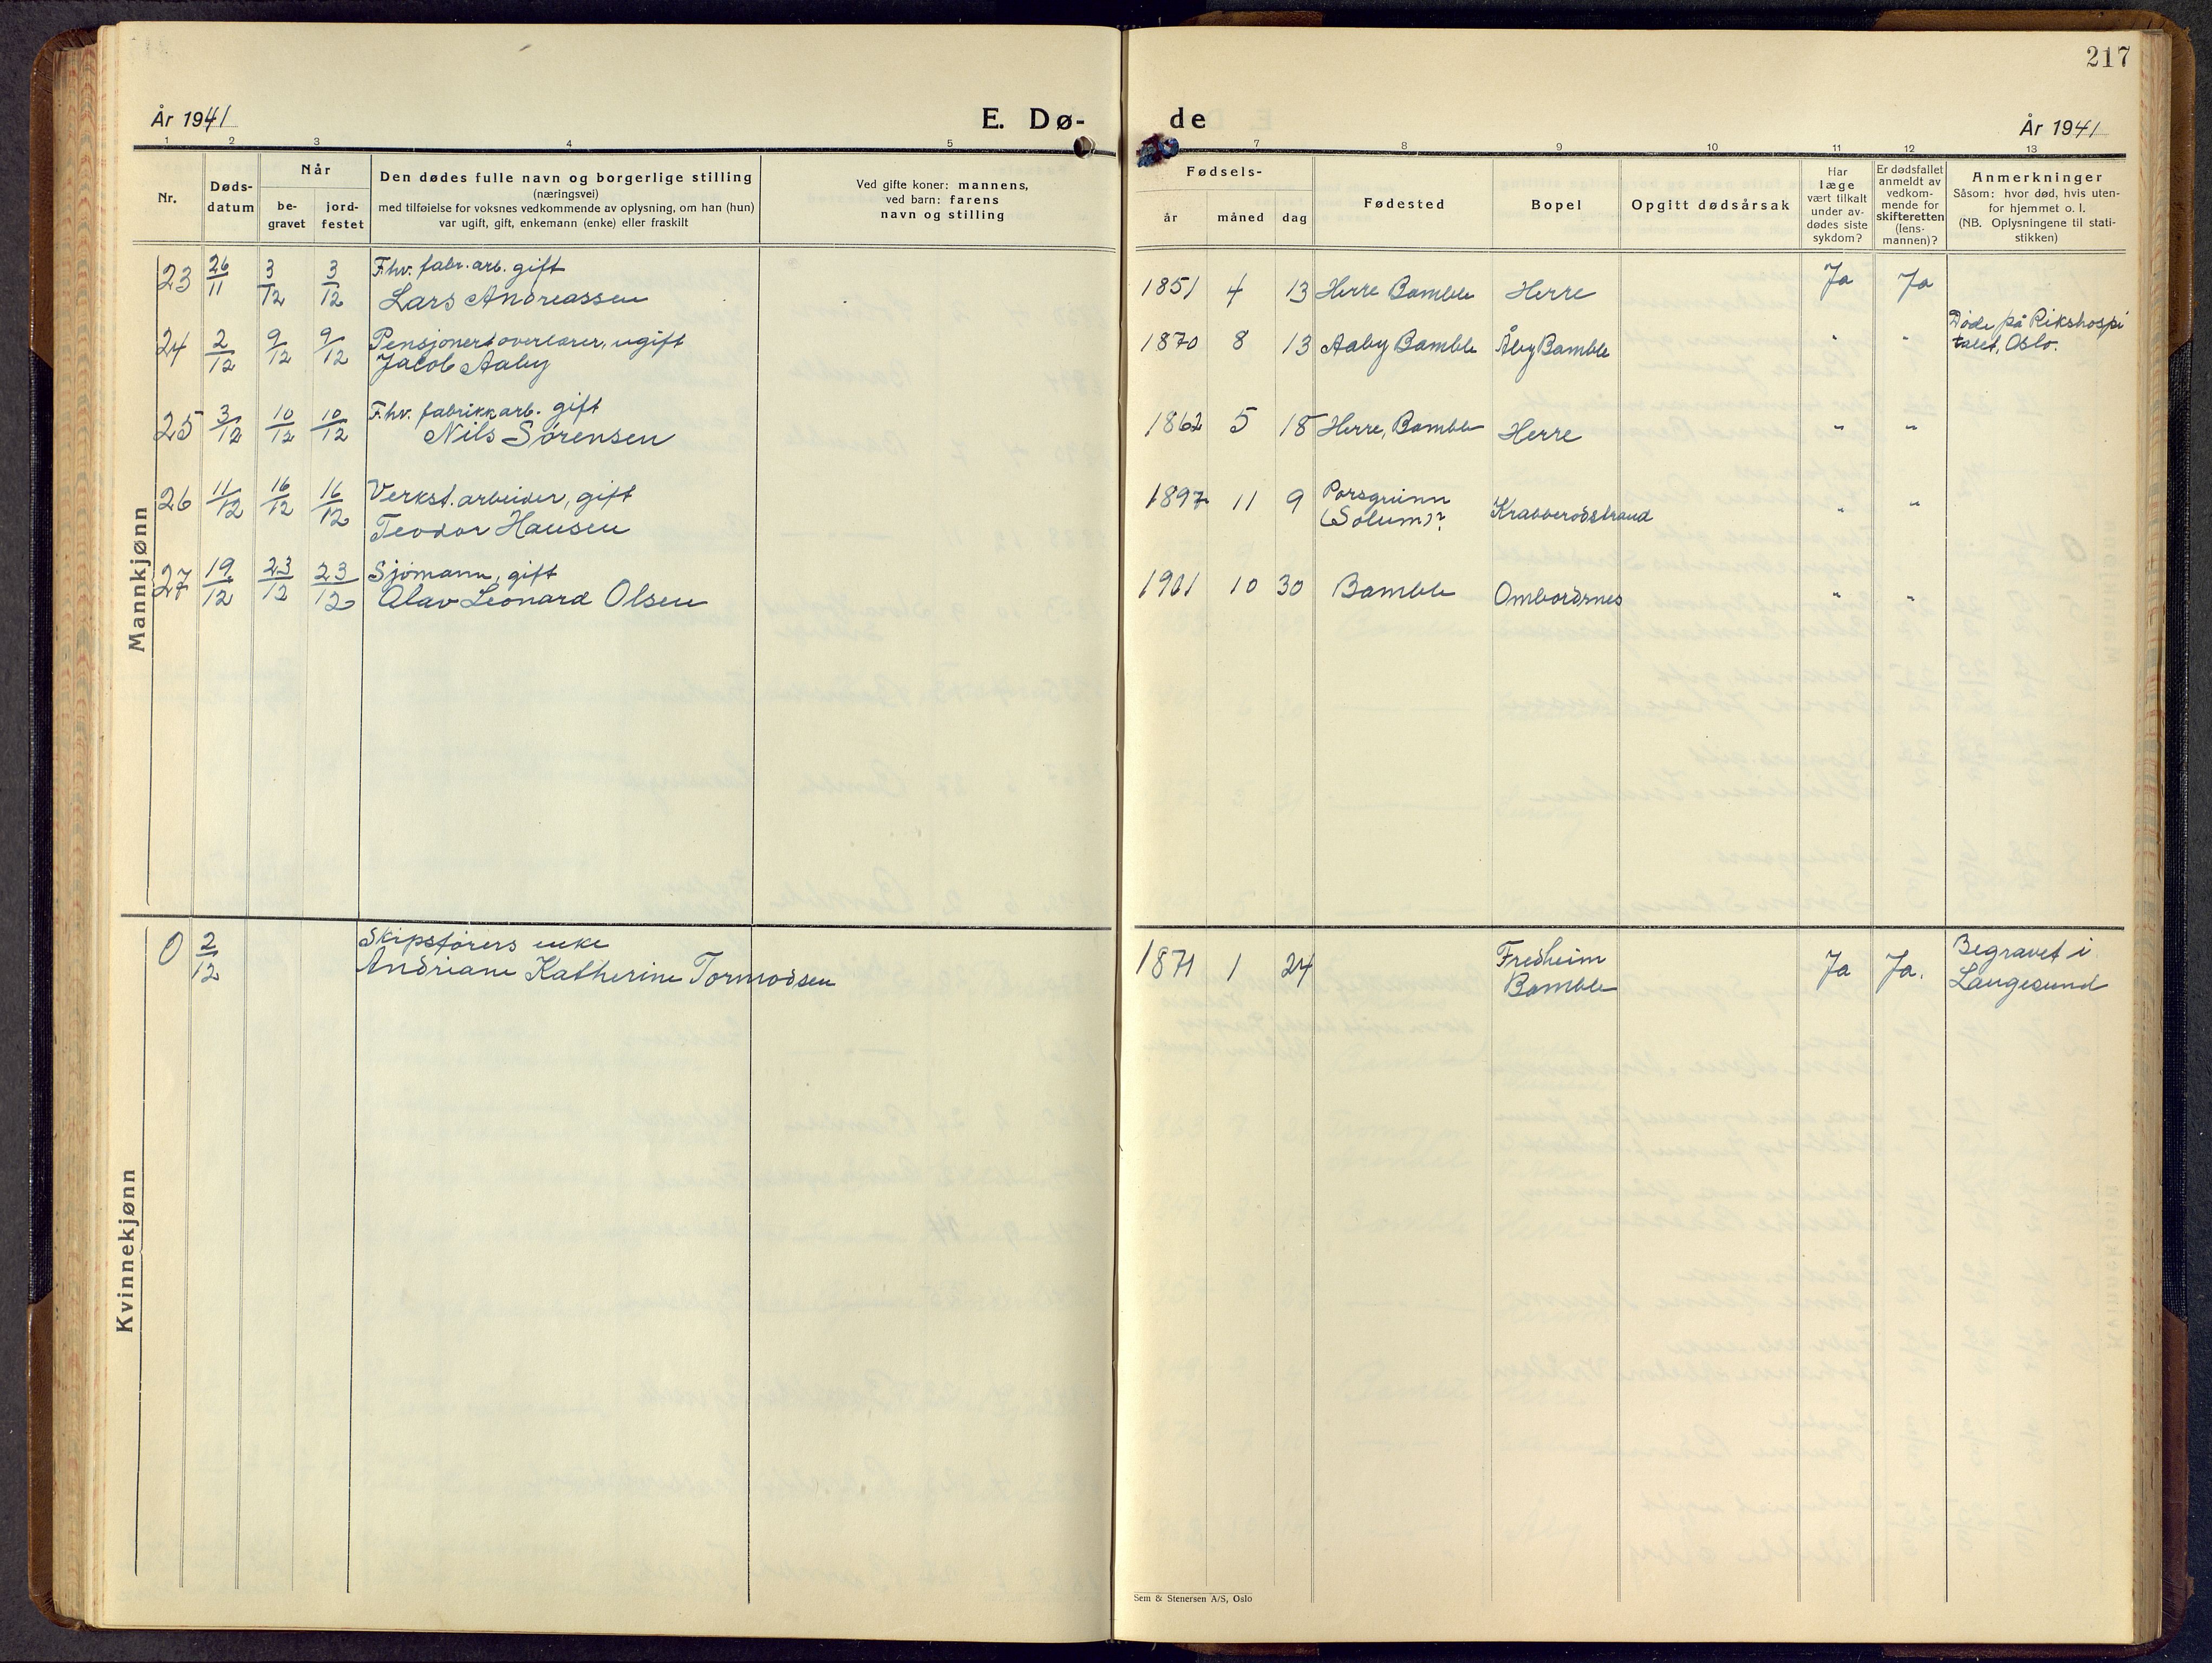 217
År 1941
E. Dø-
de
År 1941
1 2 3 4 5
7 8 9 10 11 12 13
Nr.
Døds-
datum
Når
be-
gravet
jord-
festet
Den dødes fulle navn og borgerlige stilling
(næringsvei)
med tilføielse for voksnes vedkommende av oplysning, om han (hun)
var ugift, gift, enkemann (enke) eller fraskilt
Ved gifte koner: mannens,
ved barn: farens
navn og stilling
Fødsels-
år måned dag
Fødested
Bopel
Opgitt dødsårsak
Har
læge
vært tilkalt
under av-
dødes siste
sykdom?
Er dødsfallet
anmeldt av
vedkom-
mende for
skifteretten
(lens-
mannen)?
Anmerkninger
Såsom: hvor død, hvis uten-
for hjemmet o. l.
(NB. Oplysningene til stati-
stikken)
Mannkjønn
23 26/11 3/12 3/12 F.hv. fabr. arb. gift
Lars Andreassen
1851 4 13 Herre Bamble Herre Ja Ja
24 2/12 9/12 9/12 Pensjonert overlærer, ugift
Jacob Aaby
1870 8 13 Aaby Bamble Åby Bamble " "
Døde på Rikshospi
talet, Oslo.
25 3/12 10/12 10/12 F.hv. fabrikkarb. gift
Nils Sørensen
1862 5 18 Herre, Bamble Herre " "
26 11/12 16/12 16/12 Verkst. arbeider, gift
Teodor Hansen
1897 11 9 Porsgrunn
(Solum)?
Krabberødstrand " "
27 19/12 23/12 23/12 Sjømann, gift
Olav Leonard Olsen
1901 10 30 Bamble Ombordsnes " "
Kvinnekjønn
0 2/12 Skipsførers enke
Andriane Katherine Tormodsen
1871 1 24 Fredheim
Bamble
Ja Ja.
Begravet i
Langesund
Sem & Stenersen A/S, Oslo